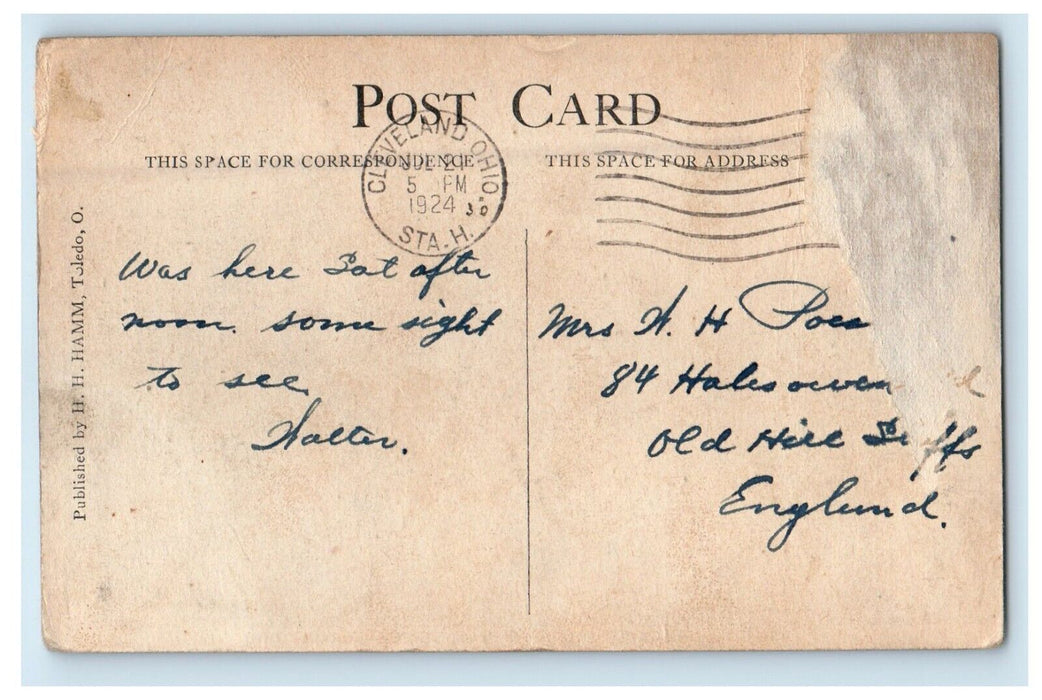 POST CARD
THIS SPACE FOR CORRESPONDENCE
THIS SPACE FOR ADDRESS
CLEVELAND, OHIO.
JUL 21
5 PM
1924
30
STA. H.
Published by H. H. HAMM, Toledo, O.
Was here Sat after
noon. some sight
to see.
Walter.
Mrs W. H
84 Halesowen
Old Hill Staffs
England.